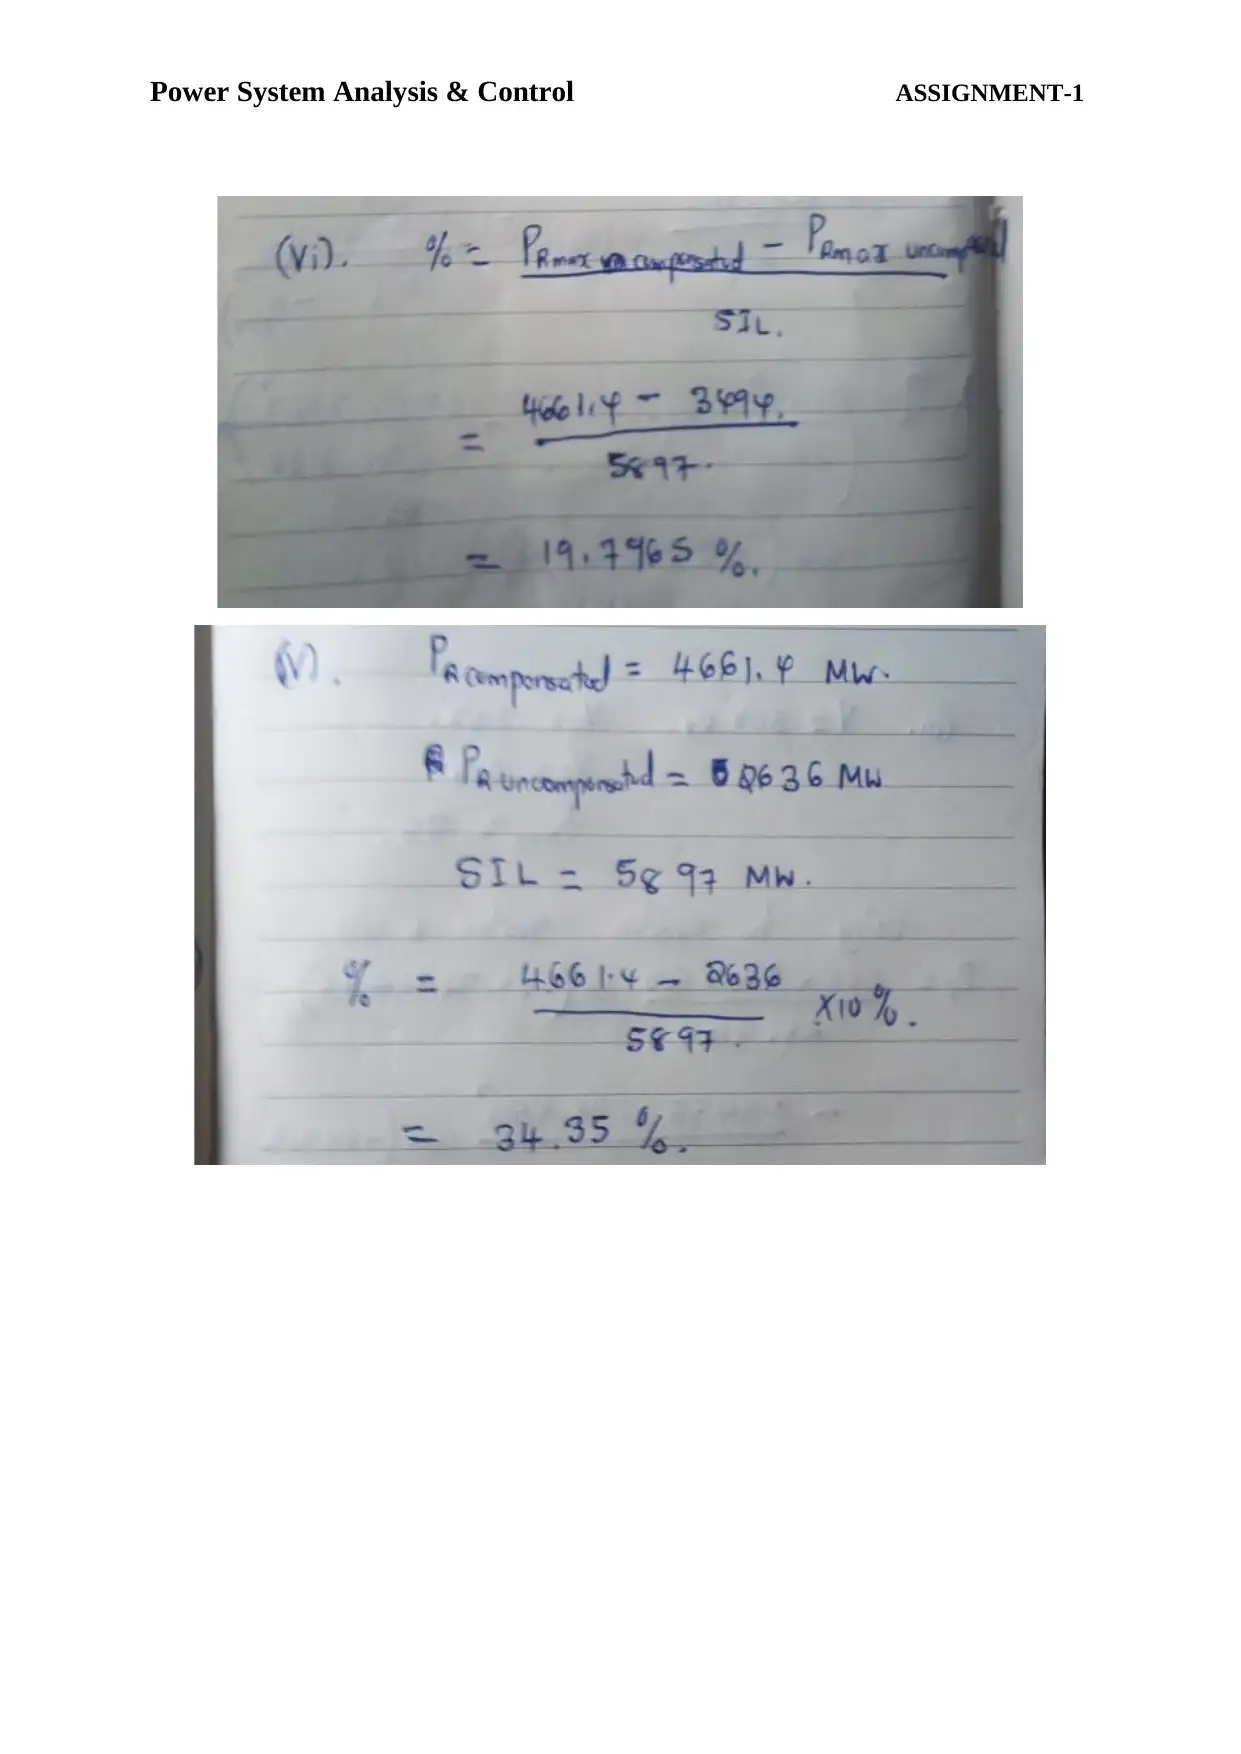 Power System Analysis & Control ASSIGNMENT-1
(Vi). % = PRmax compensated - PRmax uncompensated
SIL.
= 4661.4 - 3494.
5897.
= 19.7965 %.
(V). PR compensated = 4661.4 MW.
PR uncompensated = 2636 MW
SIL = 5897 MW.
% = 4661.4 - 2636 X10%.
5897.
= 34.35 %.